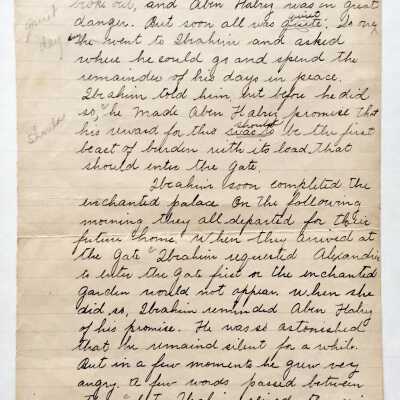 broke out, and Aben Habuz was in great
quiet danger. But soon all was quiete. So one
day he went to Ibrahim and asked
where he could go and spend the
remainder of his days in peace.
Ibrahim told him, but before he did
so, he made Aben Habuz promise that
should
his reward for this was to be the first
beast of burden with its load, that
should enter the gate.
Ibrahim soon completed the
enchanted palace. On the following
morning they all departed for their
future home. When they arrived at
the gate Ibrahim requested Alexandria
to enter the gate first or the enchanted
garden would not appear. When she
did so, Ibrahim reminded Aben Habuz
of his promise. He was so astonished
that he remaind silent for a while.
But in a few moments he grew very
angry. A few words passed between